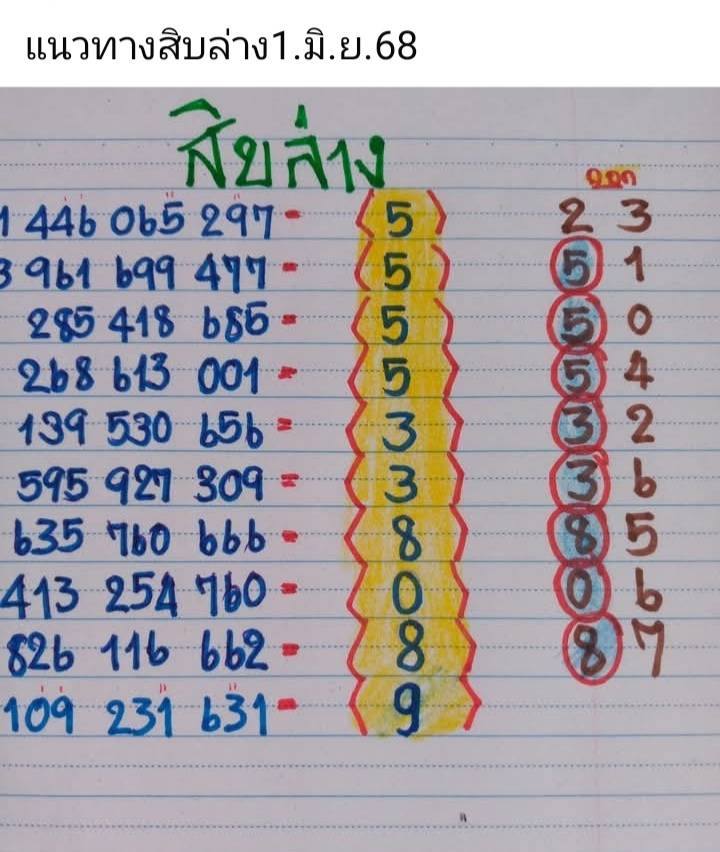 แนวทางสิบล่าง1.มิ.ย.68
สิบล่าง
ออก
1 446 065 297 = 5 2 3
3 961 699 477 = 5 5 1
285 418 685 = 5 5 0
268 613 001 = 5 5 4
139 530 656 = 3 3 2
595 927 309 = 3 3 6
635 760 666 = 8 8 5
413 254 760 = 0 0 6
826 116 662 = 8 8 7
109 231 631 = 9